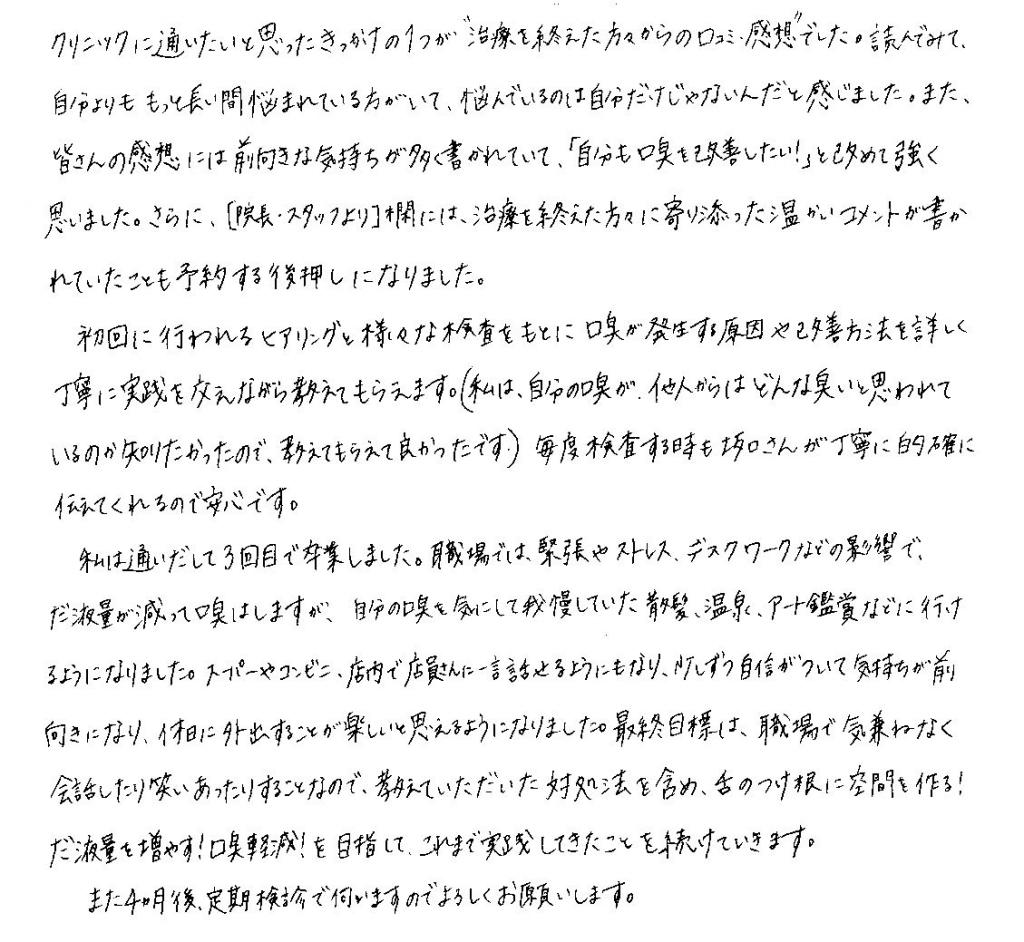 クリニックに通いたいと思ったきっかけの1つが"治療を終えた方々からの口コミ・感想"でした。読んでみて、
自分よりも もっと長い間悩まれている方がいて、悩んでいるのは自分だけじゃないんだと感じました。また、
皆さんの感想には前向きな気持ちが多く書かれていて、「自分も口臭を改善したい!」と改めて強く
思いました。さらに、[院長・スタッフより]欄には、治療を終えた方々に寄り添った温かいコメントが書か
れていたことも予約する後押しになりました。
初回に行われるヒアリングと様々な検査をもとに口臭が発生する原因や改善方法を詳しく
丁寧に実践を交えながら教えてもらえます。(私は、自分の口臭が、他人からはどんな臭いと思われて
いるのか知りたかったので、教えてもらえて良かったです。) 毎度検査する時も坂口さんが丁寧に的確に
伝えてくれるので安心です。
私は通いだして3回目で卒業しました。職場では、緊張やストレス、デスクワークなどの影響で、
だ液量が減って口臭はしますが、自分の口臭を気にして我慢していた散髪、温泉、アート鑑賞などに行け
るようになりました。スーパーやコンビニ、店内で店員さんに一言話せるようにもなり、少しずつ自信がついて気持ちが前
向きになり、休日に外出することが楽しいと思えるようになりました。最終目標は、職場で気兼ねなく
会話したり笑いあったりすることなので、教えていただいた対処法を含め、舌のつけ根に空間を作る!
だ液量を増やす!口臭軽減!を目指して、これまで実践してきたことを続けていきます。
また4ヵ月後、定期検診で伺いますのでよろしくお願いします。